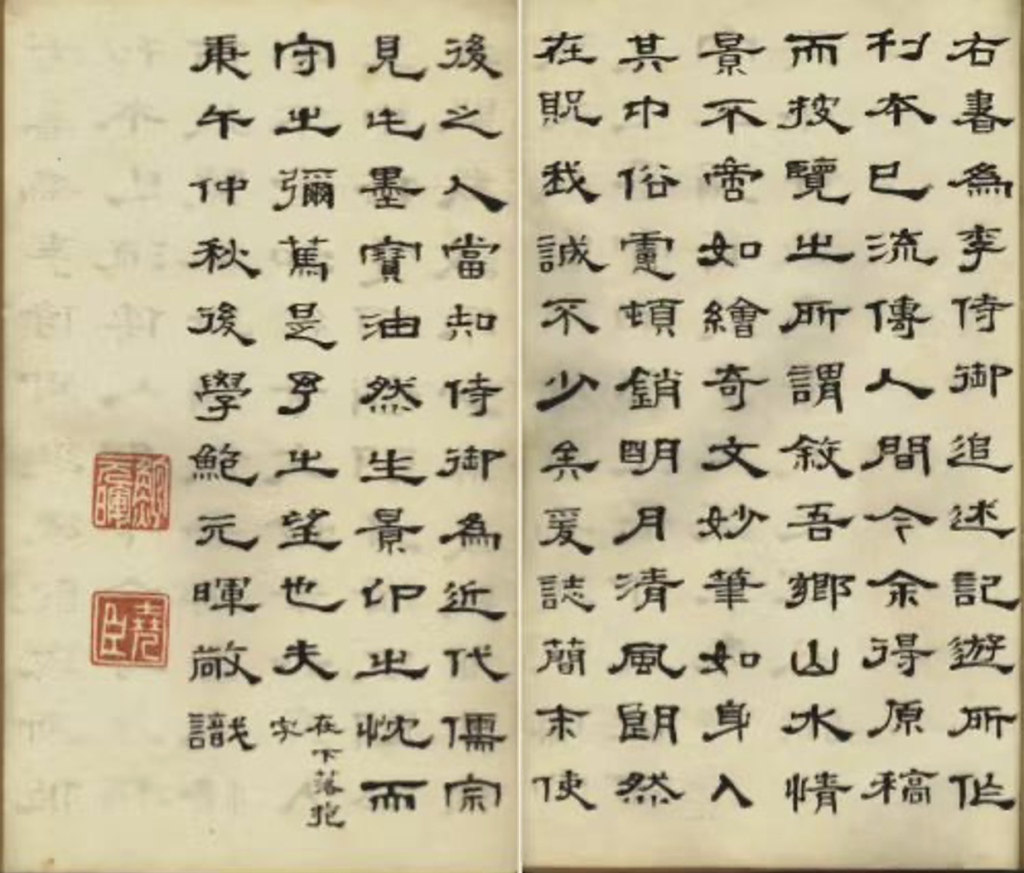 右書為李侍御追述記遊所作
刋本已流傳人間今余得原稿
而披覽之所謂敘吾鄉山水情
景不啻如繪奇文妙筆如身入
其中俗慮頓銷明月清風朗然
在貺我誠不少矣爰誌簡末使
後之人當知侍御為近代儒宗
見此墨寶油然生景仰之忱而
守之彌篤是予之望也夫
在下落抱
字
庚午仲秋後學鮑元暉敬識
鮑元暉
堯臣